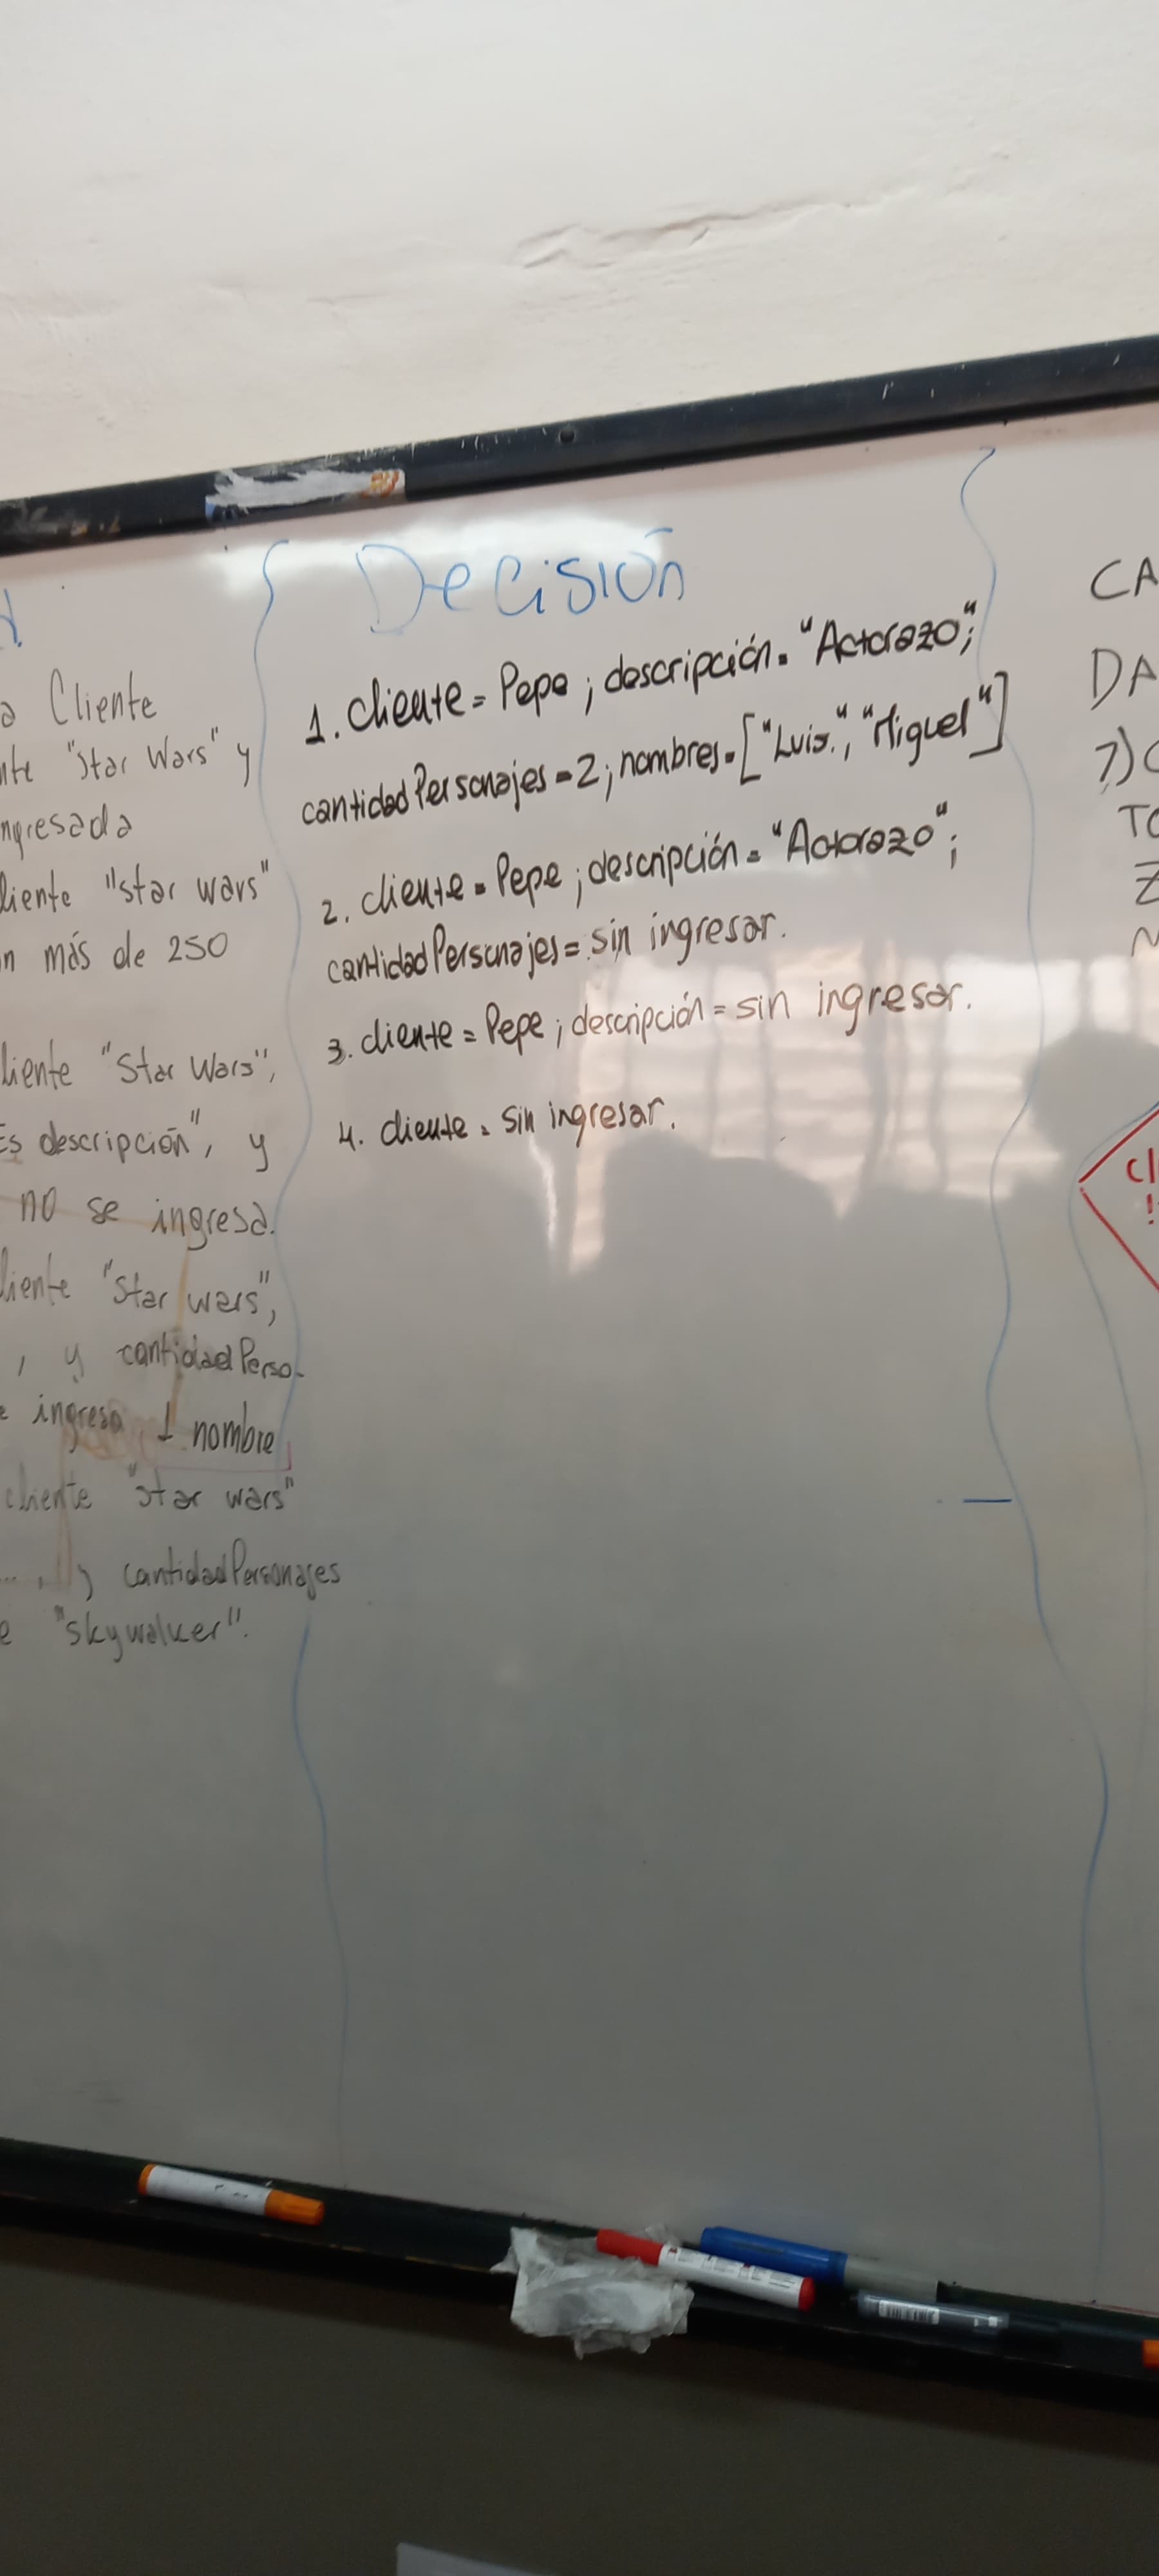 Cliente
"Star Wars" y
"star wars"
más de 250
"Star Wars",
descripción", y
no se ingresa.
"Star wars",
, y cantidadPerso-
ingresa 1 nombre
cliente "star wars"
..., y cantidadPersonajes
"skywalker".
Decisión
1. cliente = Pepe ; descripción = "Actorazo";
cantidadPersonajes = 2; nombres = ["Luis", "Miguel"]
2. cliente = Pepe ; descripción = "Actorazo";
cantidadPersonajes = sin ingresar.
3. cliente = Pepe ; descripción = sin ingresar.
4. cliente = sin ingresar.
CA
DA
7)
TO